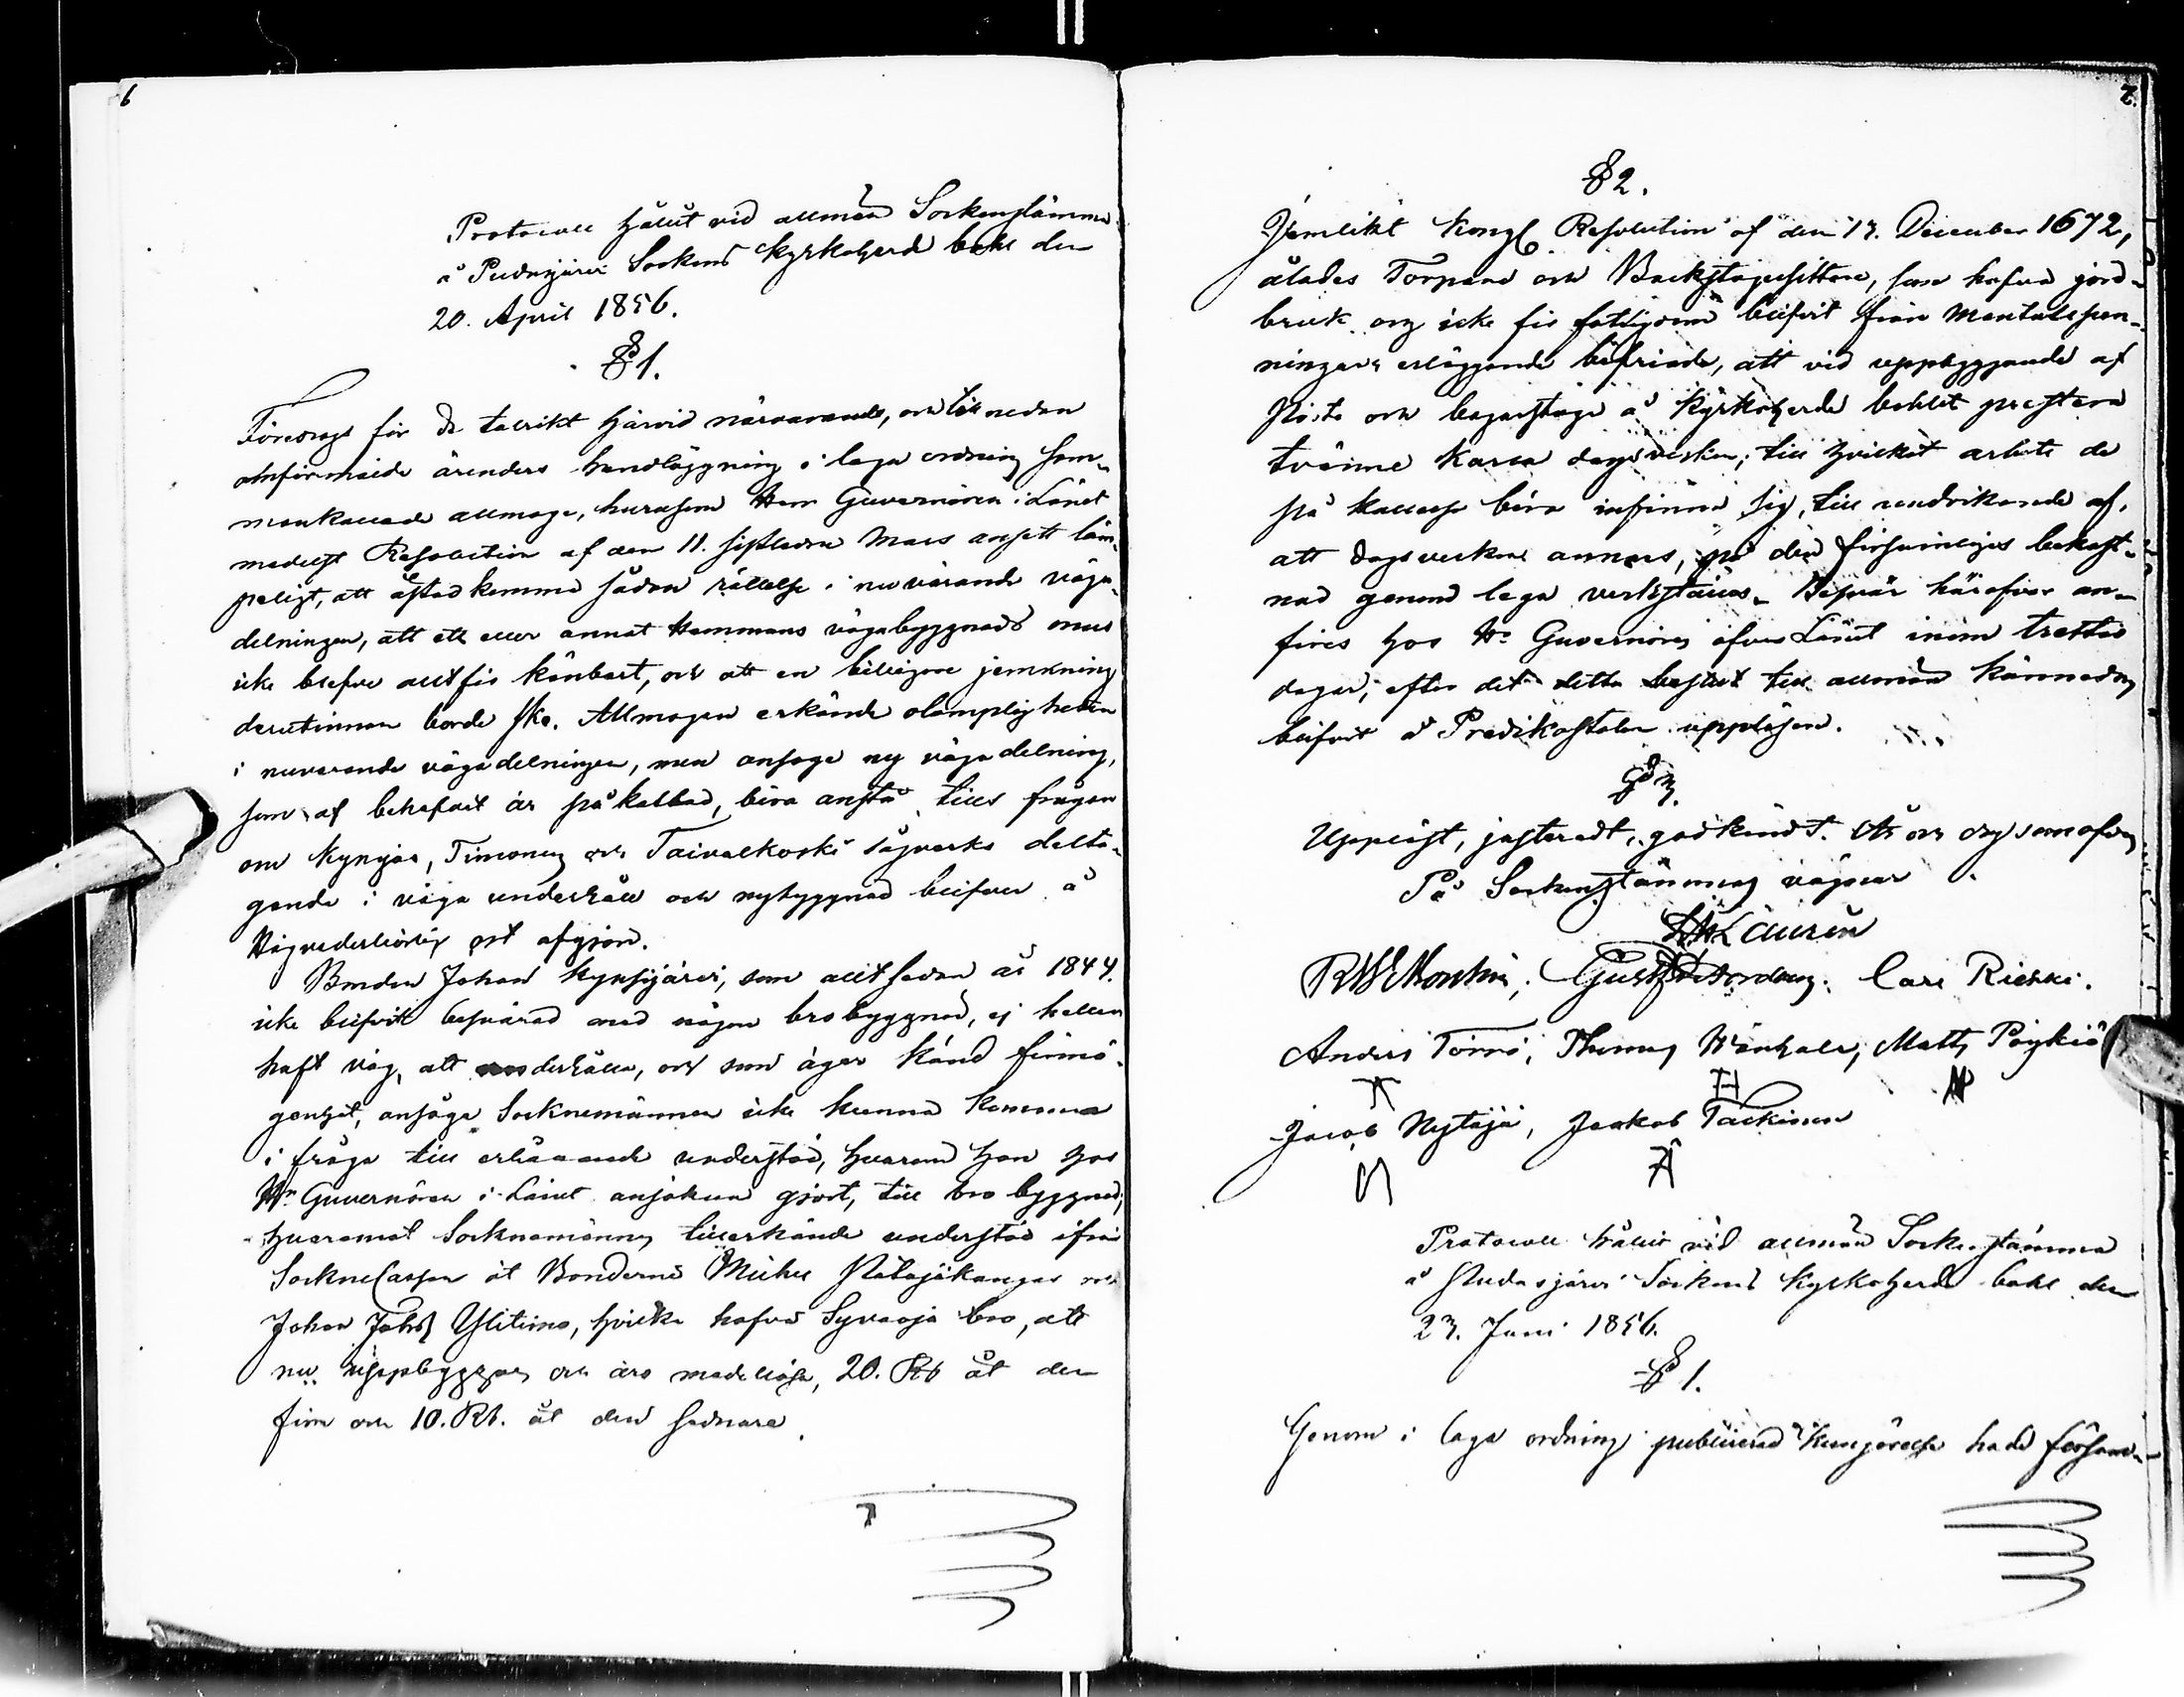 6
Protocoll hållit vid allmän Sockenstämma
å Pudasjärvi Sockens Kyrkoherde bohl den
20. April 1856.
§ 1.
Föredrogs för de talrikt härvid närvarande, och till nedan
omförmälde ärenders handläggning i laga ordning sam-
mankallade allmoge, hurusom Herr Guvernören i Länet
medelst Resolution af den 11. sistledne Mars ansett läm-
peligt, att åstadkomma sådan rättelse i nuvarande väga-
delningen, att ett eller annat Hemmans vägabyggnads onus
icke blefve alltför kännbart, och att en billigare jemkning
derutinnan borde ske. Allmogen erkände olämpligheten
i nuvarande vägadelningen, men ansågo ny vägadelning,
som af behofvet är påkallad, böra anstå tills frågan
om Kyngäs, Timonen och Taivalkoski sågverks delta-
gande i väga underhåll och nybyggnad blifver å
vederbörlig ort afgjord.
Bonden Johan Kynsijärvi, som allt sedan år 1844
icke blifvit besvärad med någon brobyggnad, ej heller
haft väg att underhålla, och som äger känd förmö-
genhet, ansågo Socknemännen icke kunna komma
i fråga till erhållande understöd, hvarom han hos
Hr Guvernören i Länet ansökan gjort, till brobyggnad;
hvaremot Socknemännen tillerkände understöd ifrån
Sockne Cassan åt Bönderne Michel Pätäjäkangas och
Johan Johss Ylitimo, hvilka hafva Syväoja bro, att
nu uppbyggas och äro medellösa, 20. Rb åt den
förra och 10. Rb. åt den sednare.
7.
§ 2.
Jemlikt Kongl. Resolution af den 17. December 1672,
ålades Torpare och Backstugusittare, som hafva jord-
bruk och icke för fattigdom blifvit från Mantalspen-
ningars erläggande befriade, att vid uppbyggande af
och bagarstuga å Kyrkoherde bohlet prestera
tvänne karla dagsverken; till hvilket arbete de
på kallelse böra infinna sig, till undvikande af,
att dagsverkena annars, på den försumliges bekost-
nad genom lega verkställas. Besvär häröfver an-
föres hos Hr Guvernören öfver Länet inom trettio
dagar, efter det detta beslut till allmän kännedom
blifvit å Predikostolen uppläsen.
§ 3.
Uppläst, justeradt, godkändt. År och dag som ofvan
På Sockenstämmans vägnar
Laurén
RW Montin; Gust. Nordberg. Carl Rieski.
Anders Törrö, Thomas Wänhala, Matts Pöykiö
Jacob Nytäjä, Jaakob Tackinen
Protocoll hållit vid allmän Sockenstämma
å Pudasjärvi Sockens Kyrkoherde bohl den
23. Juni 1856.
§ 1.
Genom i laga ordning publicerad Kungörelse hade församl-